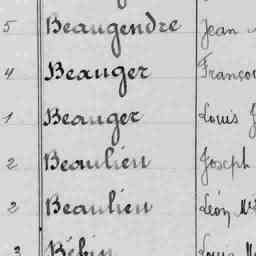 5 Beaugendre Jean
4 Beauger
1 Beauger Louis
2 Beaulieu Joseph
2 Beaulieu Léon
3 Bébin Louis